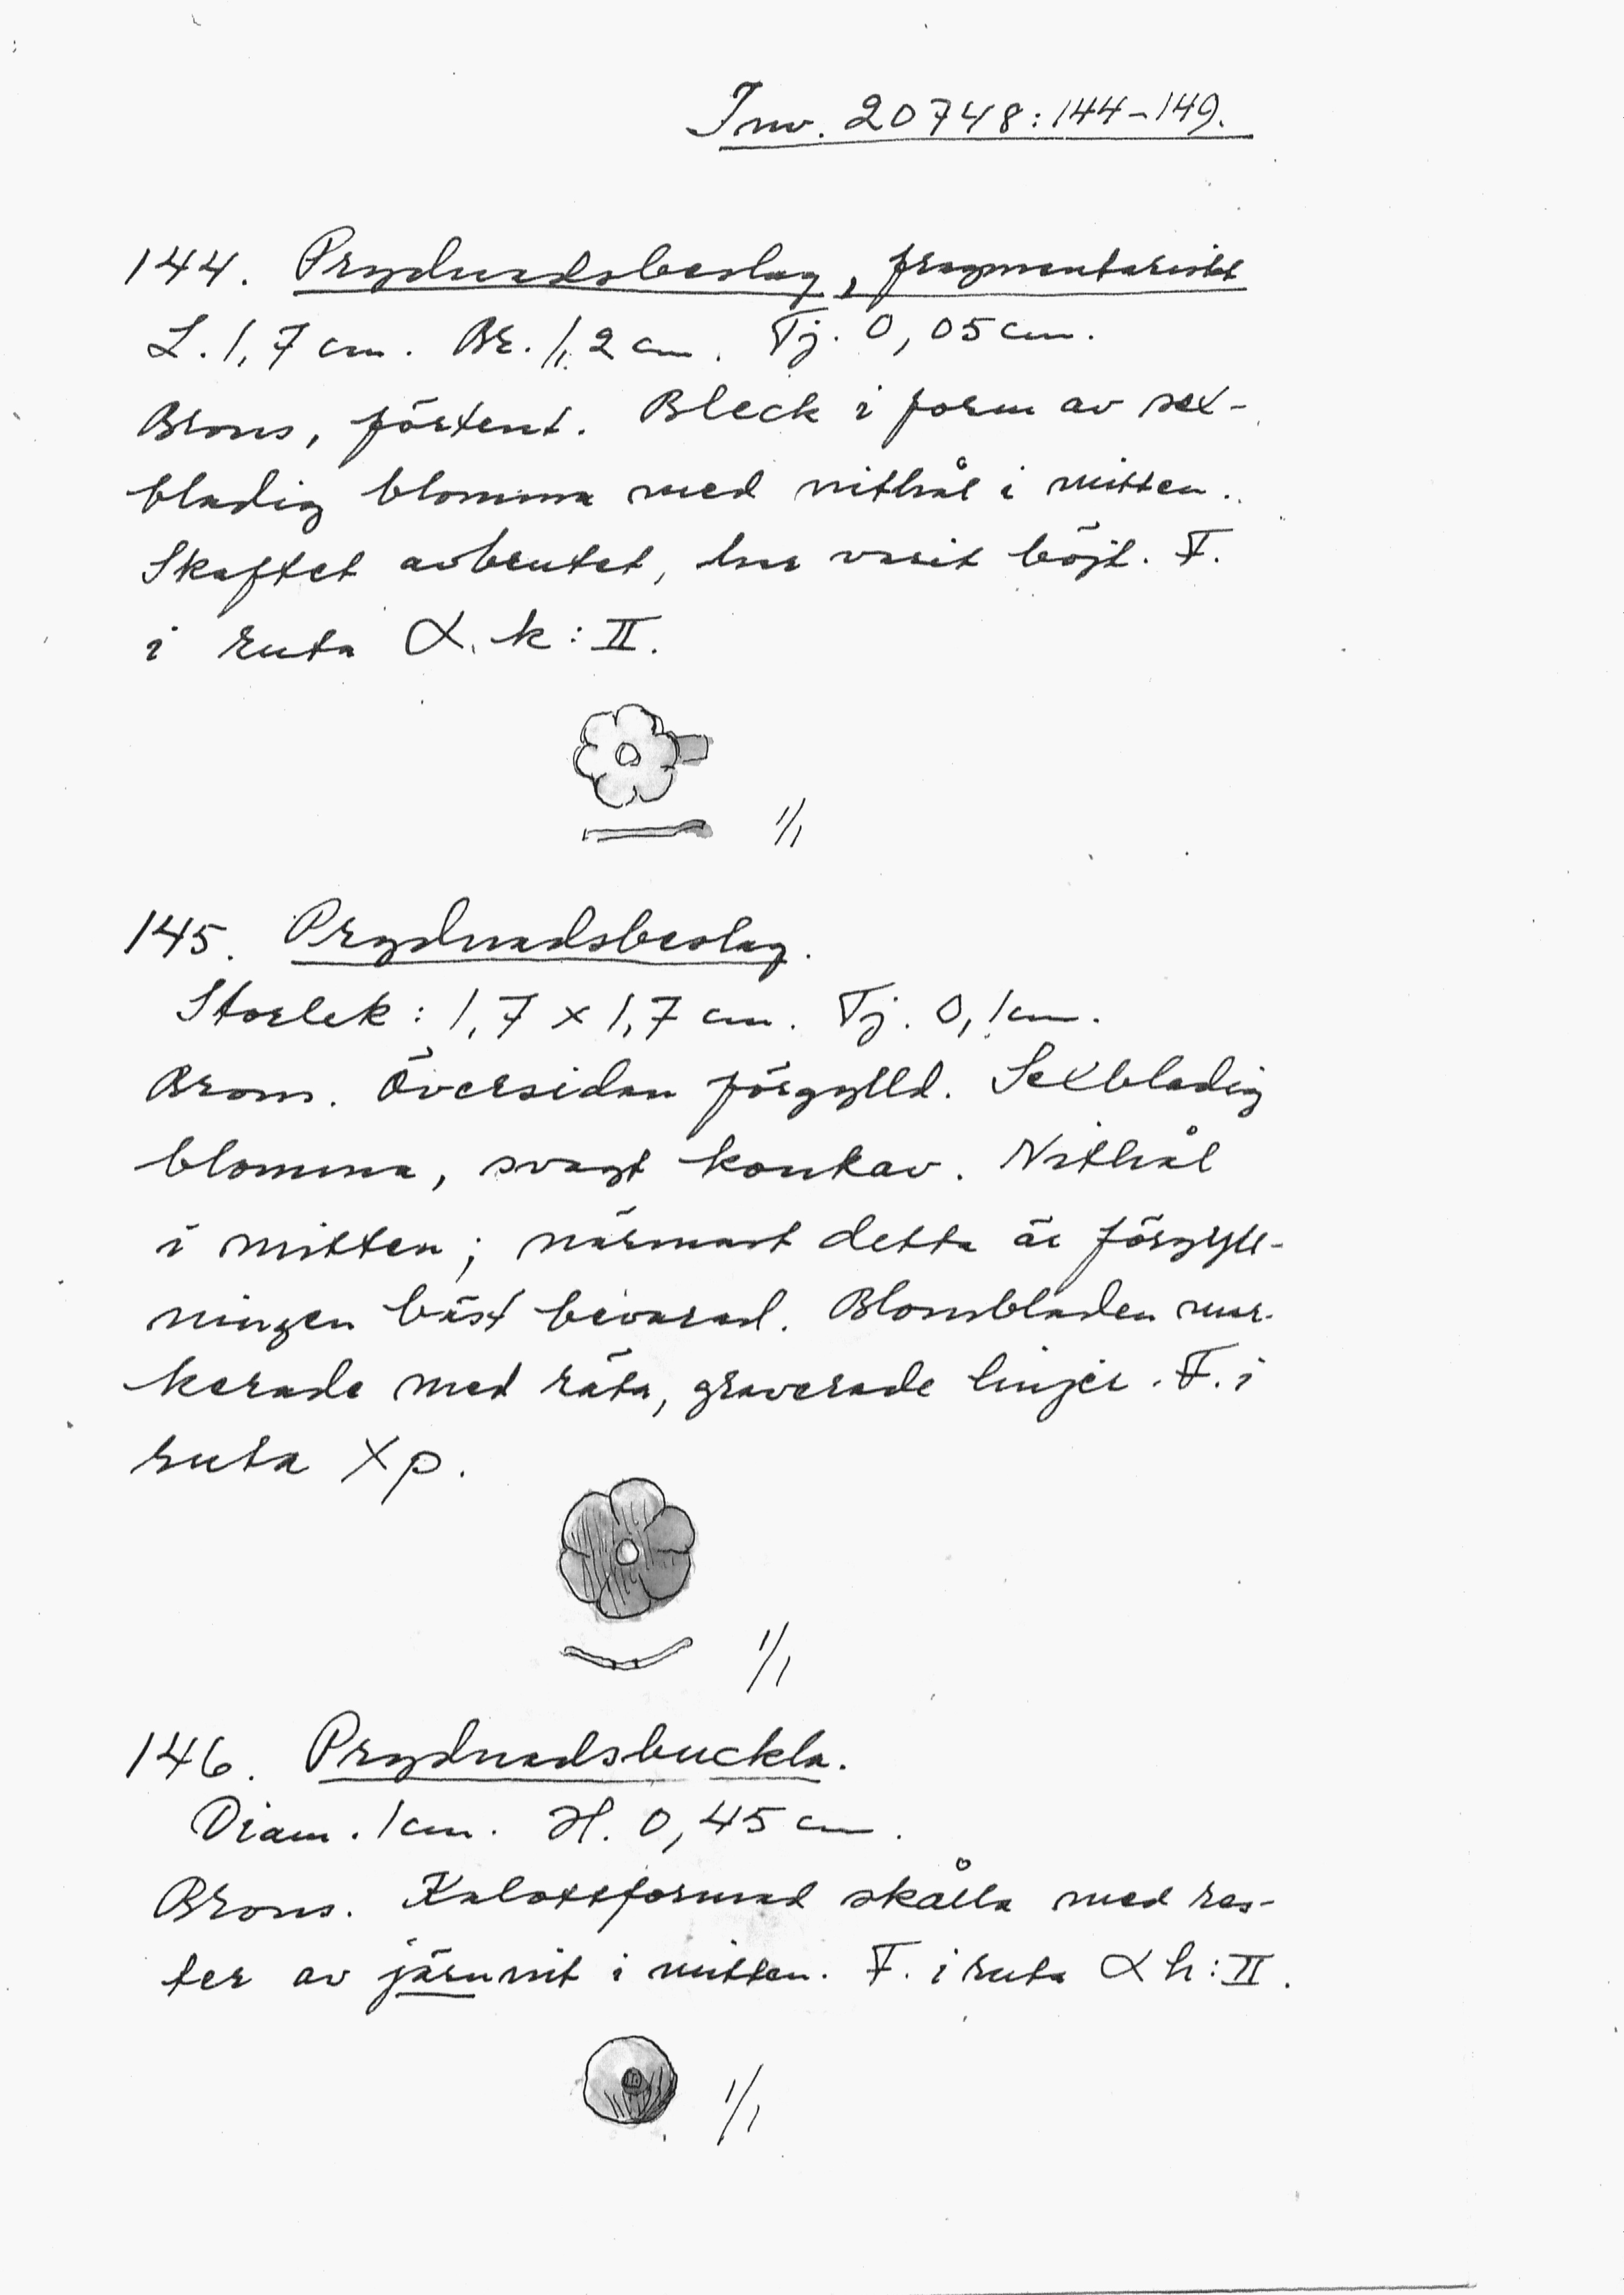 Inv. 20748:144-149.
144. Prydnadsbeslag, fragmentariskt
L. 1,7 cm. Br. 1,2 cm. Tj. 0,05 cm.
Brons, förtent. Bleck i form av sex-
bladig blomma med nithål i mitten.
Skaftet avbrutet, har varit böjt. F.
i ruta α.k:II.
1/1
145. Prydnadsbeslag.
Storlek: 1,7 x 1,7 cm. Tj. 0,1 cm.
Brons. Översidan förgylld. Sexbladig
blomma, svagt konkav. Nithål
i mitten; närmast detta är förgyll-
ningen bäst bevarad. Blombladen mar-
kerade med räta, graverade linjer. F. i
ruta Xp.
1/1
146. Prydnadsbuckla.
Diam. 1 cm. H. 0,45 cm.
Brons. Kalottformad skålla med res-
ter av järnnit i mitten. F. i ruta αh:II.
1/1